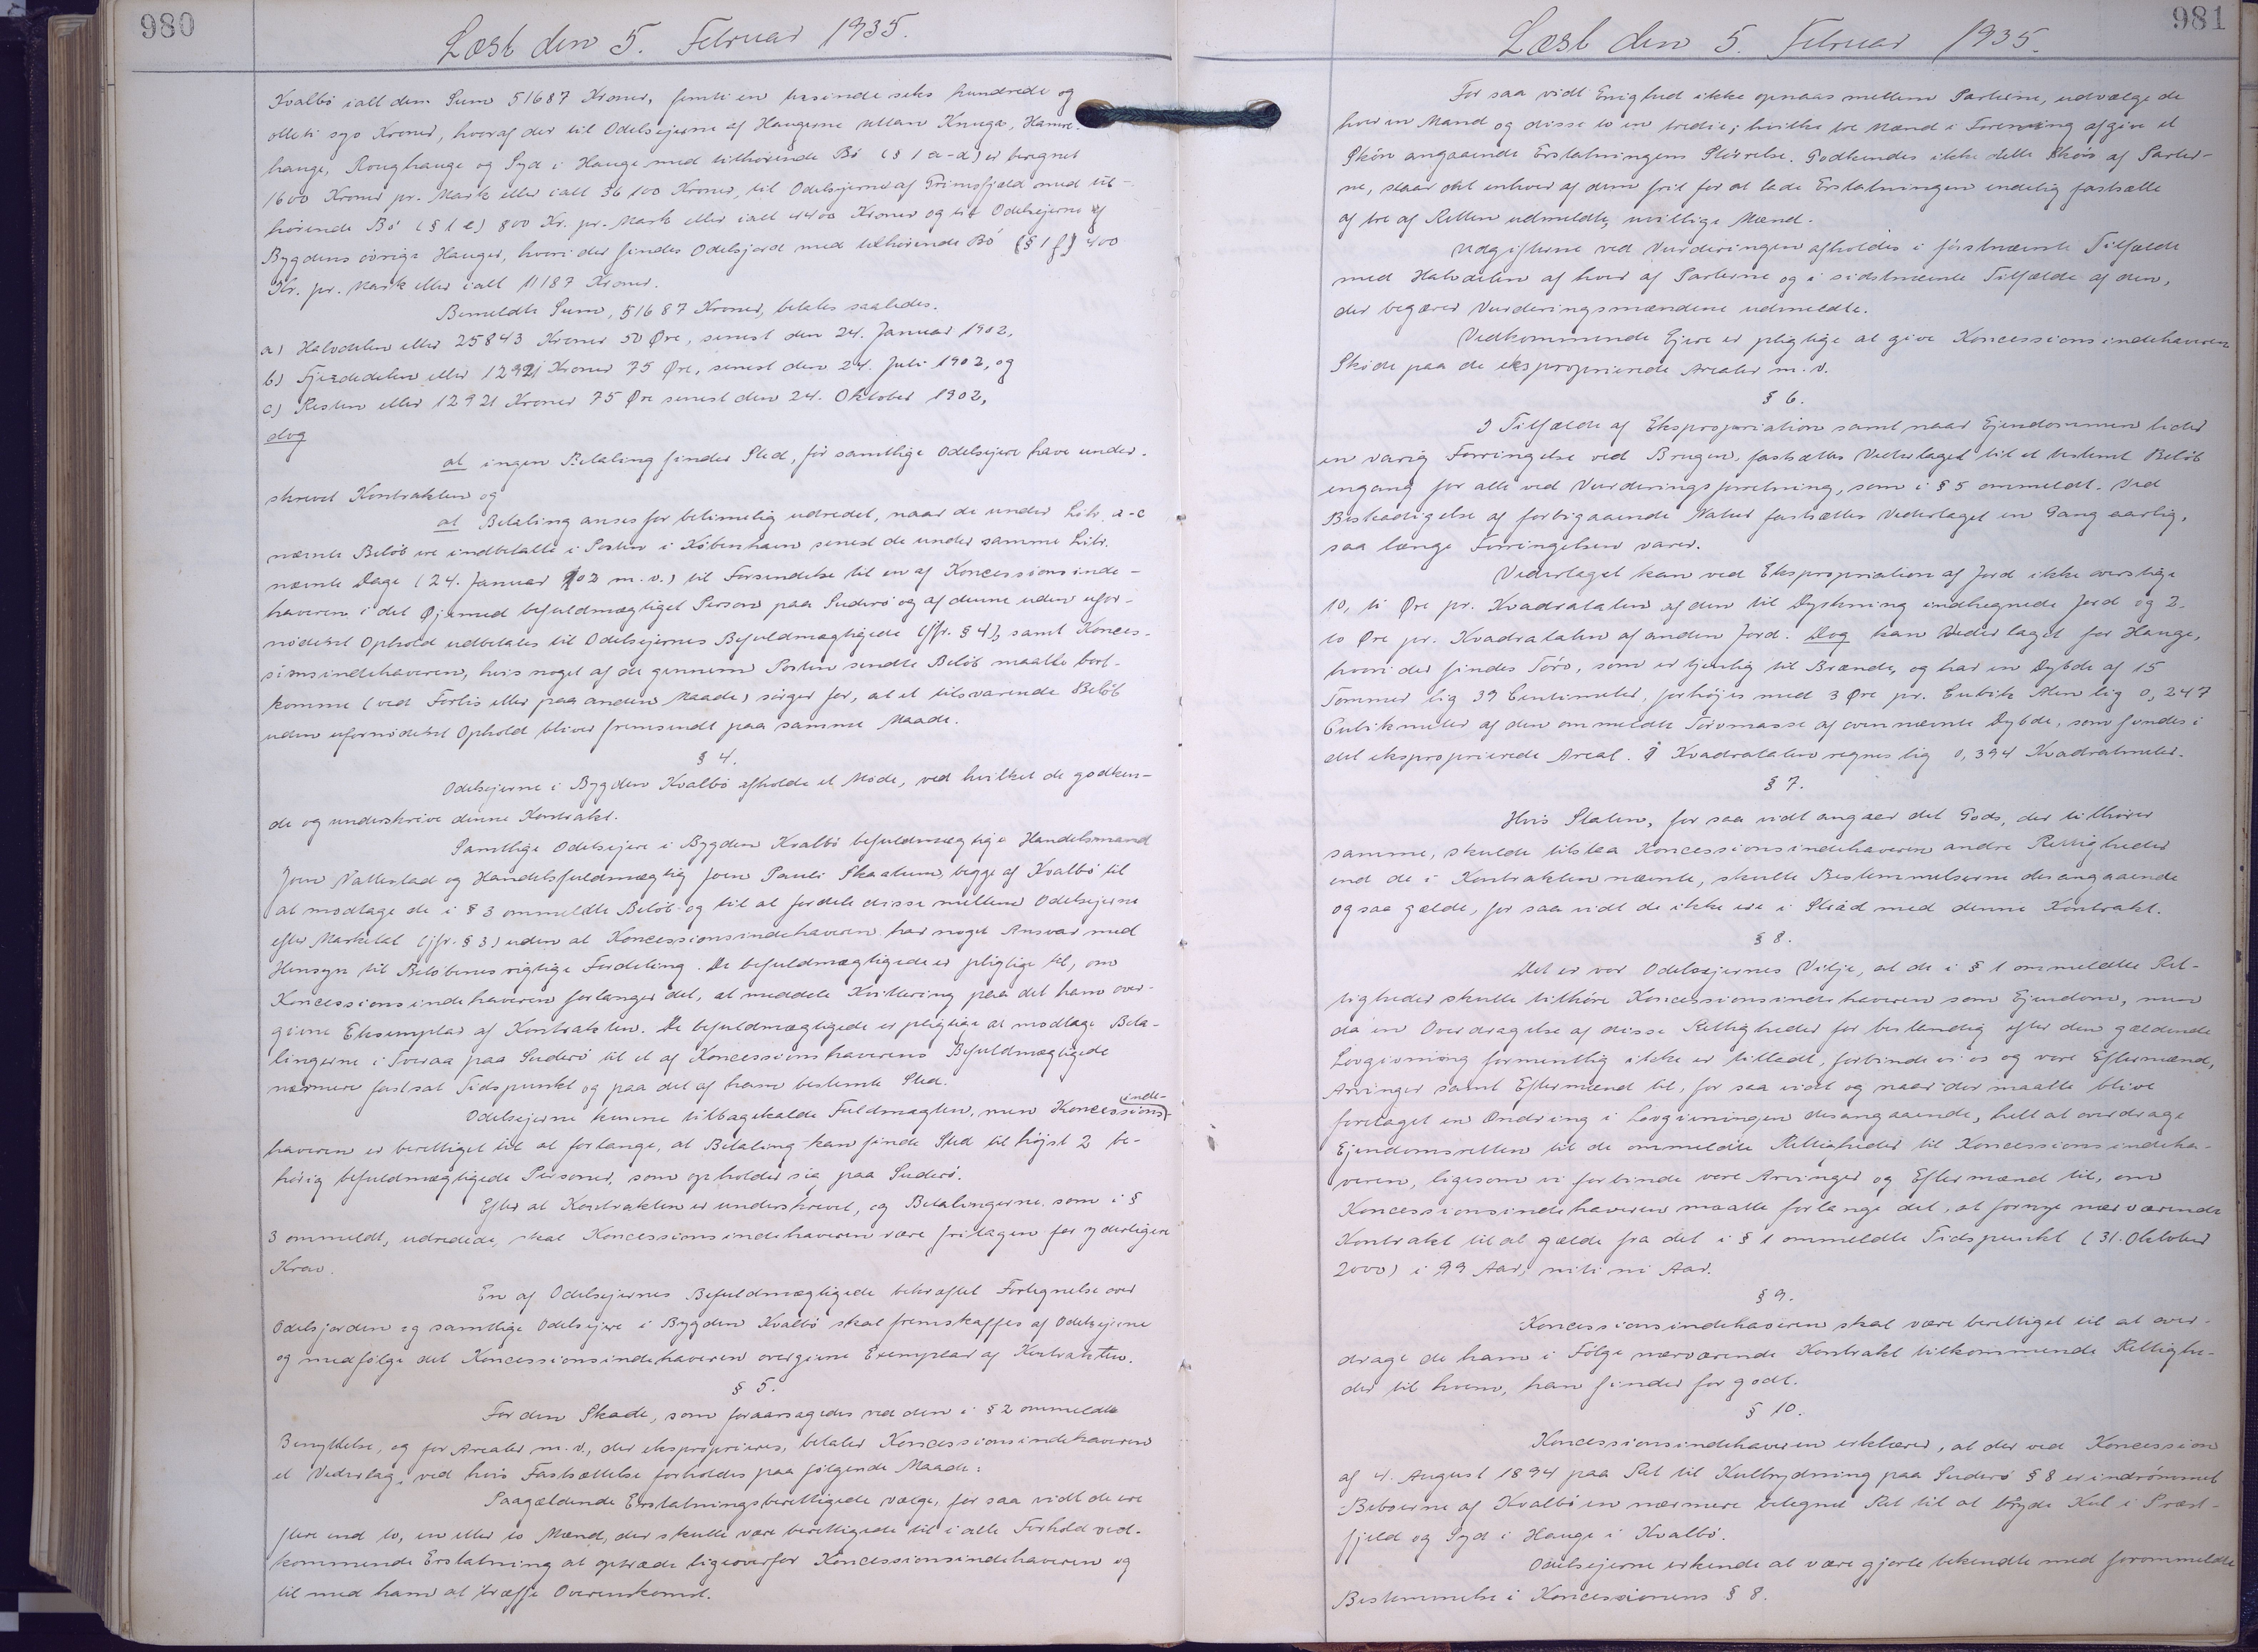 980
Læst den 5. Februar 1935.
Kvalbö ialt den Sum 51687 Kroner, femti en tusinde seks hundrede og
otteti syv Kroner, hvoraf der til Odelsejerne af Haugerne uttan Knuga, Hamre-
hauge, Roughauge og Syd i Hauge med tilhörende Bö (§ 1 a-d) er beregnet
1600 Kroner pr. Mark eller ialt 36100 Kroner, til Odelsejerne af Grimsfjæld med til-
hörende Bö (§ 1 e) 800 Kr. pr. Mark eller ialt 4400 Kroner og til Odelsejerne af
Bygdens övrige Hauger, hvori der findes Odelsjord med tilhörende Bö (§ 1 f) 400
Kr. pr. Mark eller ialt 11187 Kroner.
Bemeldte Sum, 51687 Kroner, betales saaledes.
a) Halvdelen eller 25843 Kroner 50 Øre, senest den 24. Januar 1902,
b) Fjerdedelen eller 12921 Kroner 75 Øre, senest den 24. Juli 1902, og
c) Resten eller 12921 Kroner 75 Øre senest den 24. Oktober 1902,
dog
at ingen Betaling finder Sted, för samtlige Odelsejere have under-
skrevet Kontrakten og
at Betaling anses for betimelig udredet, naar de under Litr. a-c
nævnte Beløb ere indbetalte i Posten i København senest de under samme Litr.
nævnte Dage (24. Januar 902 m.v.) til Forsendelse til en af Koncessionsinde-
haveren i det Øjemed befuldmægtiget Person paa Suderö og af denne uden ufor-
nødent Ophold udbetales til Odelsejernes Befuldmægtigede (jfr. § 4), samt Konces-
sionsindehaveren, hvis noget af de gennem Posten sendte Beløb maatte bort-
komme (ved Forlis eller paa anden Maade) sörger for, at et tilsvarende Beløb
uden ufornødent Ophold bliver fremsendt paa samme Maade.
§ 4.
Odelsejerne i Bygden Kvalbö afholde et Møde, ved hvilket de godken-
de og underskrive denne Kontrakt.
Samtlige Odelsejere i Bygden Kvalbö befuldmægtige Handelsmand
Joen Nattestad og Handelsfuldmægtig Joen Pauli Skaalum begge af Kvalbö til
at modtage de i § 3 ommeldte Beløb og til at fordele disse mellem Odelsejerne
efter Marketal (jfr. § 3) uden at Koncessionsindehaveren har noget Ansvar med
Hensyn til Beløbenes rigtige Fordeling. De befuldmægtigede er pligtige til, om
Koncessionsindehaveren forlanger det, at meddele Kvittering paa det ham over-
givne Eksemplar af Kontrakten. De befuldmægtigede er pligtige at modtage Beta-
lingerne i Tveraa paa Suderö til et af Koncessionshaverens Befuldmægtigede
nærmere fastsat Tidspunkt og paa det af ham bestemte Sted.
Odelsejerne kunne tilbagekalde Fuldmagten, men Koncessionsinde-
haveren er berettiget til at forlange, at Betaling kan finde Sted til højst 2 be-
hörig befuldmægtigede Personer, som opholder sig paa Suderö.
Efter at Kontrakten er underskrevet, og Betalingerne, som i §
3 ommeldt, udredede, skal Koncessionsindehaveren være fritagen for yderligere
Krav.
En af Odelsejernes Befuldmægtigede bekræftet Fortegnelse over
Odelsjorden og samtlige Odelsejere i Bygden Kvalbö skal fremskaffes af Odelsejerne
og medfölge det Koncessionsindehaveren overgivne Exemplar af Kontrakten.
§ 5.
For den Skade, som foraarsagedes ved den i § 2 ommeldte
Benyttelse, og for Arealer m.v., der eksproprieres, betaler Koncessionsindehaveren
et Vederlag, ved hvis Fastsættelse forholdes paa fölgende Maade:
Paagældende Erstatningsberettigede vælge, for saa vidt de ere
flere end to, en eller to Mænd, der skulle være berettigede til i alle Forhold ved-
kommende Erstatning at optræde ligeoverfor Koncessionsindehaveren og
til med ham at træffe Overenskomst.
981
Læst den 5. Februar 1935.
For saa vidt Enighed ikke opnaas mellem Parterne, udvælge de
hver en Mand og disse to en tredie; hvilke tre Mænd i Forening afgive et
Skön angaaende Erstatningens Störrelse. Godkendes ikke dette Skön af Parter-
ne, staar det enhver af dem frit for at lade Erstatningen endelig fastsætte
af tre af Retten udmeldte, uvillige Mænd.
Udgifterne ved Vurderingen afholdes i förstnævnte Tilfælde
med Halvdelen af hver af Parterne og i sidstnævnte Tilfælde af den,
der begærer Vurderingsmændene udmeldte.
Vedkommende Ejere er pligtige at give Koncessionsindehaveren
Sköde paa de eksproprierede Arealer m.v.
§ 6.
I Tilfælde af Ekspropriation samt naar Ejendommen lider
en varig Forringelse ved Brugen, fastsættes Vederlaget til et bestemt Beløb
engang for alle ved Vurderingsforretning, som i § 5 ommeldt. Ved
Beskadigelse af forbigaaende Natur fastsættes Vederlaget en Gang aarlig,
saa længe Forringelsen varer.
Vederlaget kan ved Ekspropriation af Jord ikke overstige
10, ti Øre pr. Kvadratalen af den til Dyrkning indhegnede Jord og 2-
to Øre pr. Kvadratalen af anden Jord. Dog kan Vederlaget for Hauge,
hvori der findes Törv, som er tjenlig til Brænde, og har en Dybde af 15
Tommer lig 39 Centimeter, forhöjes med 3 Øre pr. Cubik Alen lig 0,247
Cubikmeter af den ommeldte Törvmasse af ovennævnte Dybde, som fandes i
det eksproprierede Areal. 1 Kvadratalen regnes lig 0,394 Kvadratmeter.
§ 7.
Hvis Staten, for saa vidt angaar det Gods, der tilhörer
samme, skulde tilstaa Koncessionsindehaveren andre Rettigheder
end de i Kontrakten nævnte, skulle Bestemmelserne desangaaende
ogsaa gælde, for saa vidt de ikke ere i Strid med denne Kontrakt.
§ 8.
Det er vor Odelsejernes Vilje, at de i § 1 ommeldte Ret-
tigheder skulle tilhöre Koncessionsindehaveren som Ejendom, men
da en Overdragelse af disse Rettigheder for bestandig efter den gældende
Lovgivning formentlig ikke er tilladt, forbinde vi os og vore Eftermænd,
Arvinger samt Eftermænd til, for saa vidt og naar der maatte blive
foretaget en Ændring i Lovgivningen desangaaende, helt at overdrage
Ejendomsretten til de ommeldte Rettigheder til Koncessionsindeha-
veren, ligesom vi forbinde vore Arvinger og Eftermænd til, om
Koncessionsindehaveren maatte forlange det, at fornye nærværende
Kontrakt til at gælde fra det i § 1 ommeldte Tidspunkt (31. Oktober
2000) i 99 Aar, niti ni Aar.
§ 9.
Koncessionsindehaveren skal være berettiget til at over-
drage de ham i Fölge nærværende Kontrakt tilkommende Rettighe-
der til hvem, han finder for godt.
§ 10.
Koncessionsindehaveren erklærer, at der ved Koncession
af 4. August 1894 paa Ret til Kulbrydning paa Suderö § 8 er indrömmet
Beboerne af Kvalbö en nærmere betegnet Ret til at bryde Kul i Præst-
fjeld og Syd i Hauge i Kvalbö.
Odelsejerne erkende at være gjorte bekendte med forommeldte
Bestemmelse i Koncessionens § 8.